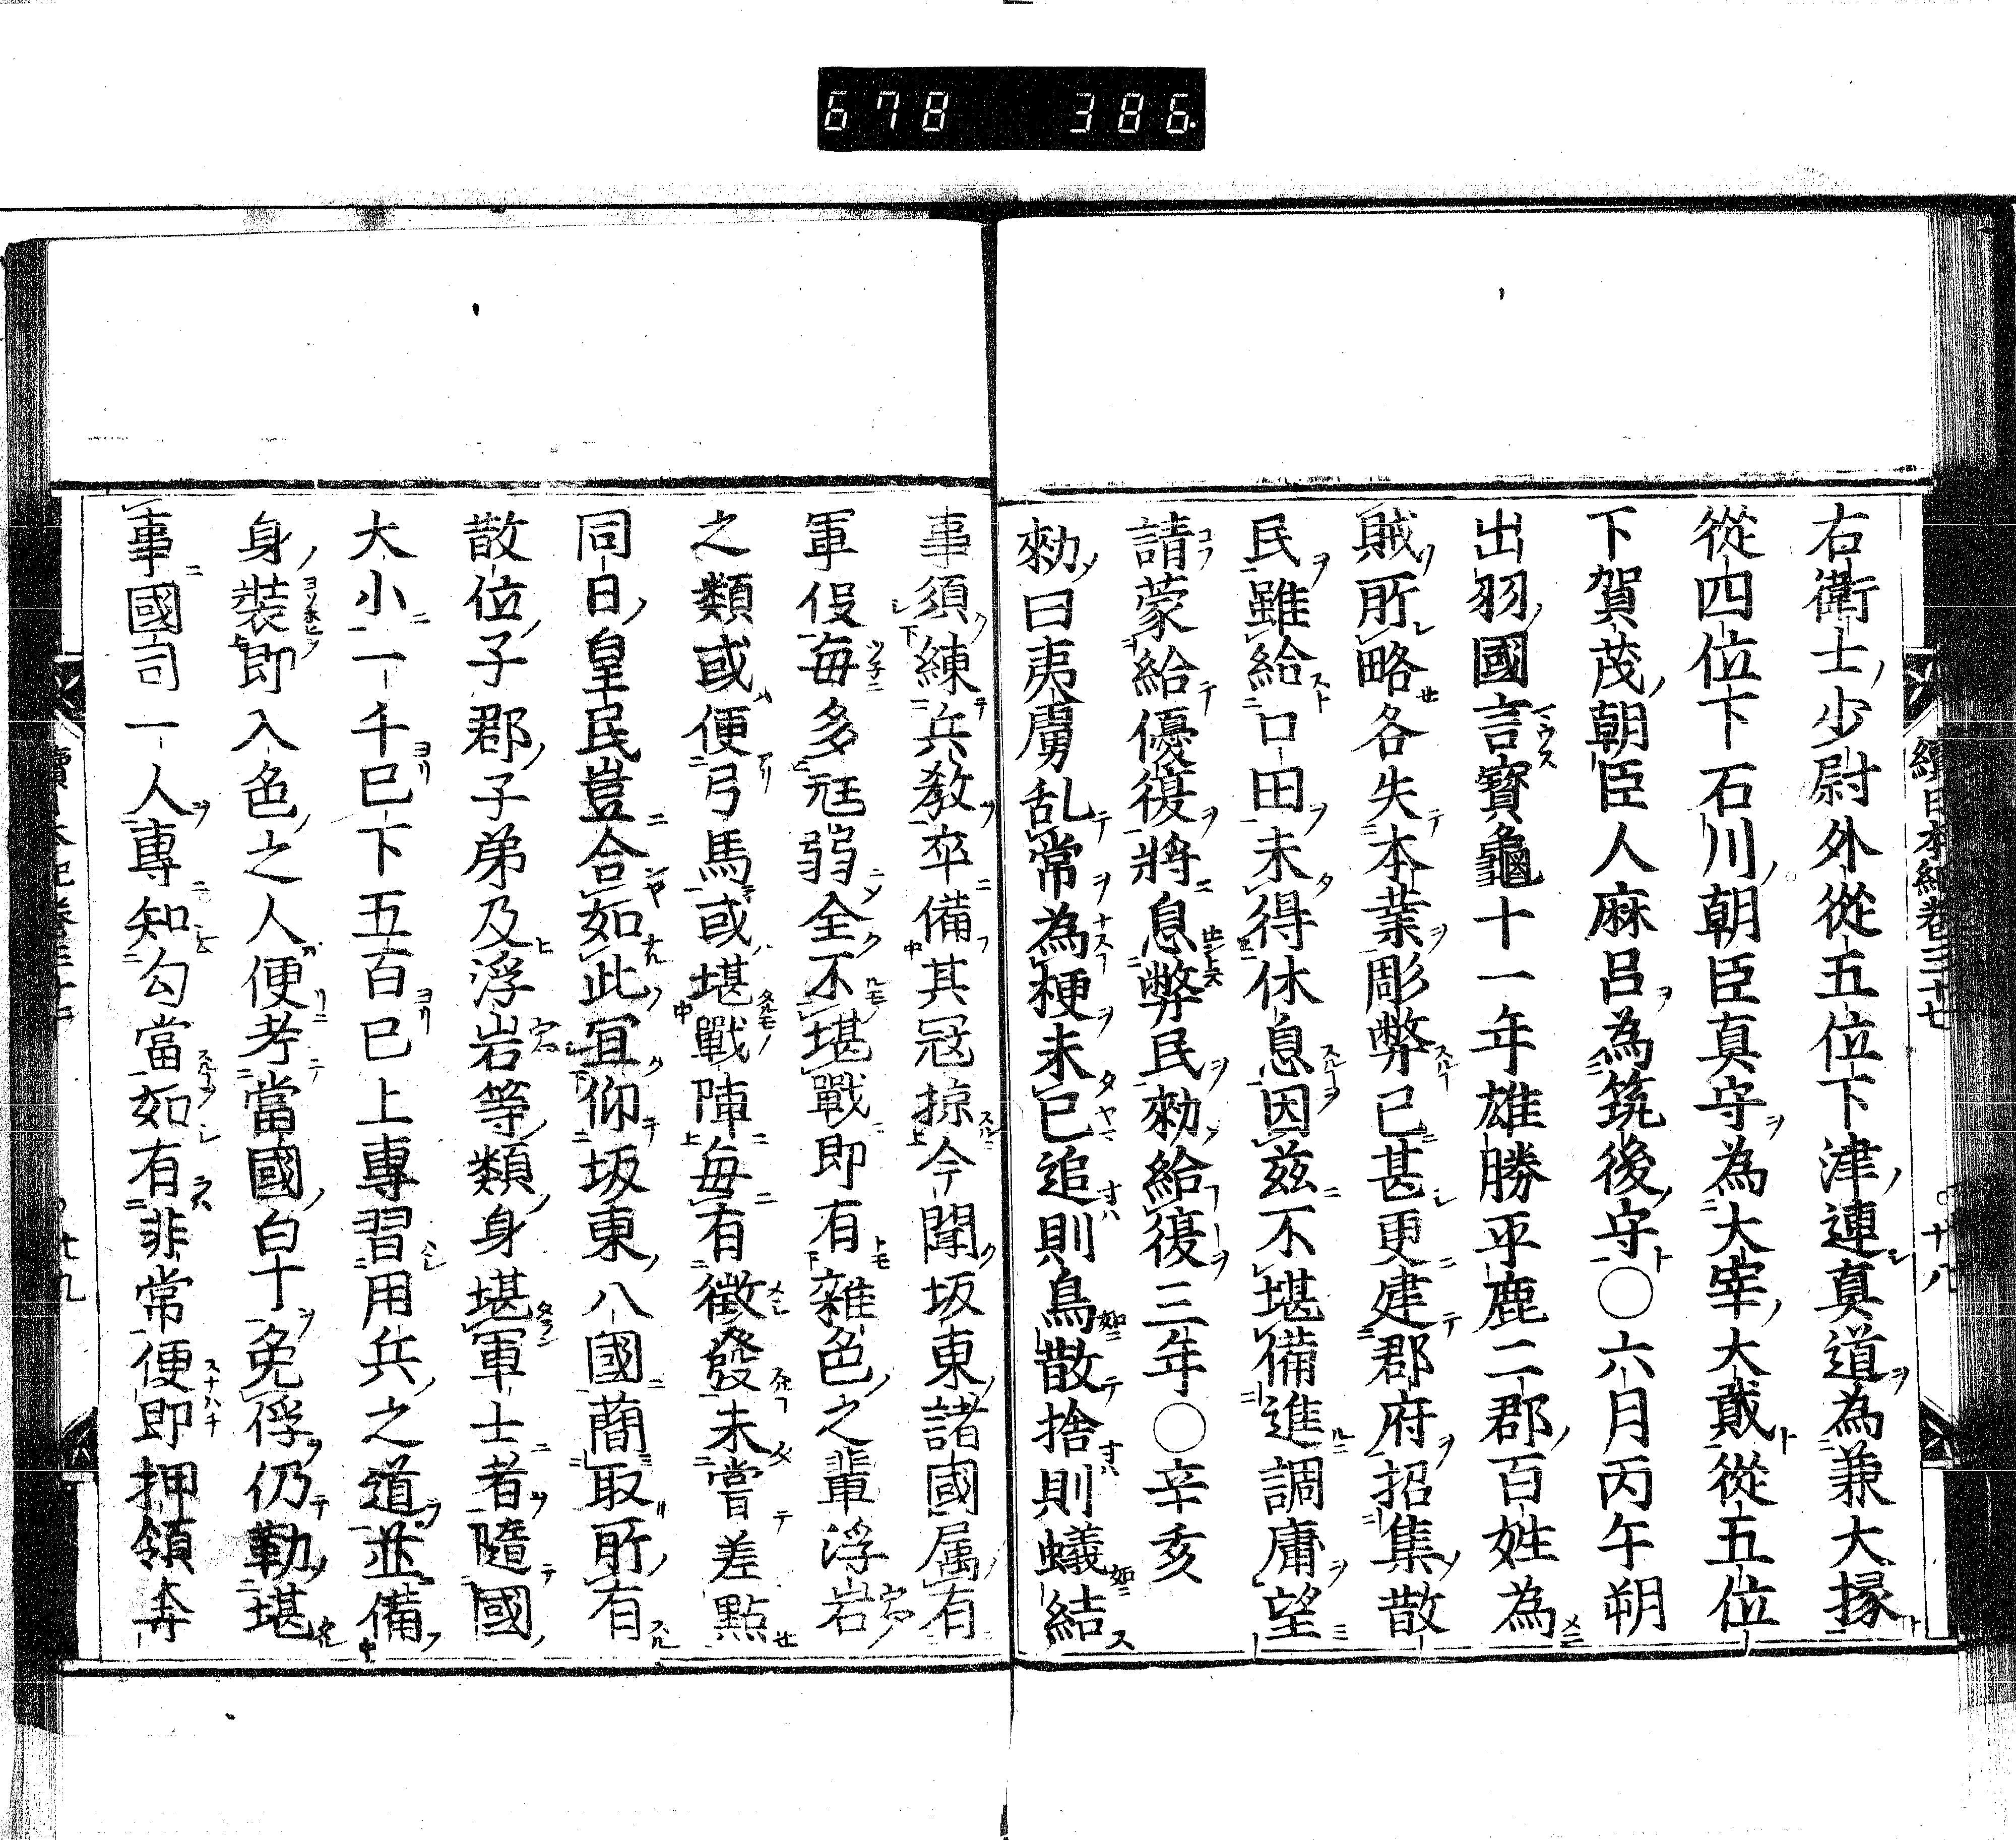 678 386.
續日本紀卷三十七 ○十八
右衛士少尉外從五位下津連真道為兼大掾
從四位下石川朝臣真守為大宰大貳從五位
下賀茂朝臣人麻呂為筑後守○六月丙午朔
出羽國言寶龜十一年雄勝平鹿二郡百姓為
賊所略各失本業彫弊已甚更建郡府招集散
民雖給口田未得休息因茲不堪備進調庸望
請蒙給優復將息弊民勑給復三年○辛亥
勑曰夷虜乱常為梗未已追則鳥散捨則蟻結
事須練兵教卒備其冦掠今聞坂東諸國属有
軍役每多尫弱全不堪戰即有雜色之輩浮宕
之類或便弓馬或堪戰陣每有徵發未嘗差點
同曰皇民豈合如此宜仰坂東八國簡取所有
散位子郡子弟及浮宕等類身堪軍士者隨國
大小一千已下五百已上專習用兵之道並備
身裝即入色之人便考當國白丁免徭仍勒堪
事國司一人專知勾當如有非常便即押領奔